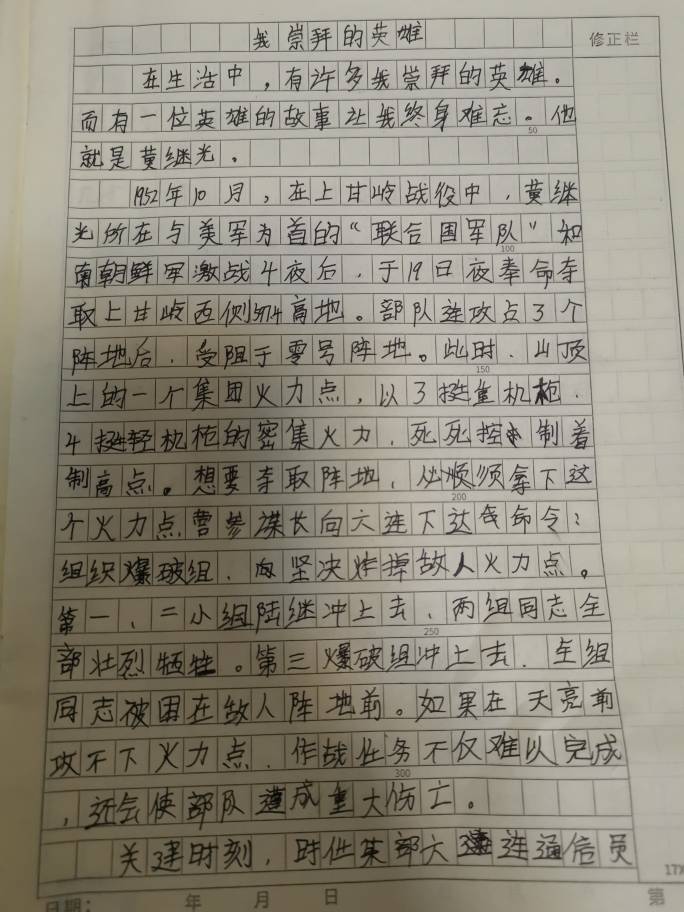 我崇拜的英雄
修正栏
在生活中，有许多我崇拜的英雄。
而有一位英雄的故事让我终身难忘。他
50
就是黄继光。
1952年10月，在上甘岭战役中，黄继
光所在与美军为首的“联合国军队”和
100
南朝鲜军激战4夜后，于19日夜奉命夺
取上甘岭西侧574高地。部队连攻占3个
阵地后，受阻于零号阵地。此时，山顶
150
上的一个集团火力点，以3挺重机枪，
4挺轻机枪的密集火力，死死控制着
制高点。想要夺取阵地，必须拿下这
200
个火力点曹参谋长向六连下达命令：
组织爆破组，坚决炸掉敌人火力点。
第一、二小组陆继冲上去，两组同志全
250
部壮烈牺牲。第三爆破组冲上去，全组
同志被困在敌人阵地前。如果在天亮前
攻不下火力点，作战任务不仅难以完成
300
，还会使部队遭成重大伤亡。
关建时刻，时任某部六连通信员
日期： 年 月 日
第
17X